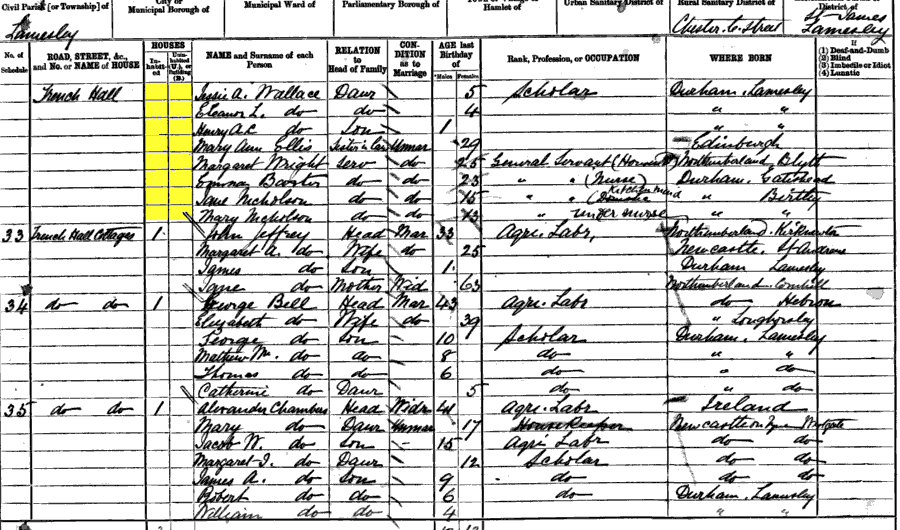 Civil Parish [or Township] of City or Municipal Borough of Municipal Ward of Parliamentary Borough of Hamlet of Urban Sanitary District of Rural Sanitary District of District of
Lamesley Chester-le-Street St James Lamesley
No. of Schedule ROAD, STREET, &c., and No. or NAME of HOUSE HOUSES Inhabited NAME and Surname of each Person RELATION to Head of Family CONDITION as to Marriage AGE last Birthday of Males Females Rank, Profession, or OCCUPATION WHERE BORN If (1) Deaf-and-Dumb (2) Blind (3) Imbecile or Idiot (4) Lunatic
Trench Hall Jessie A. Wallace Daur 5 Scholar Durham. Lamesley
Eleanor L. do do 4 " "
Henry A. L. do Son 1 " "
Mary Ann Ellis Sister in Law Unmar 29 Edinburgh
Margaret Wright Serv do 25 General Servant Northumberland Blyth
Emma do do 23 " " (Nurse) Durham. Gateshead
Jane Nicholson do do 15 " " Kitchen Maid Domestic " Birtley
Mary Nicholson do do 13 " under nurse " "
33 Trench Hall Cottages 1 John Jeffrey Head Mar 33 Agri. Labr. Northumberland. Kirknewton
Margaret A. do Wife do 25 Newcastle. St Andrews
James do Son 1 Durham Lamesley
Jane do Mother Wid 63 Northumberland. Cornhill
34 do do 1 George Bell Head Mar 43 Agri. Labr do Hebron
Elizabeth do Wife do 39 " Longhorsley
George do Son 10 Scholar Durham. Lamesley
Mathew Wm. do do 8 do " "
Thomas do do 6 do " do
Catherine do Daur 5 do " do
35 do do 1 Alexander Chambers Head Widr 41 Agri. Labr Ireland
Mary do Daur Unmar 17 Housekeeper Newcastle on Tyne Westgate
Jacob W. do Son – 15 Agri Labr do do
Margaret I. do Daur 12 Scholar do do
James A. do Son 9 do do do
Robert do do 6 do Durham. Lamesley
William do do 4 " "